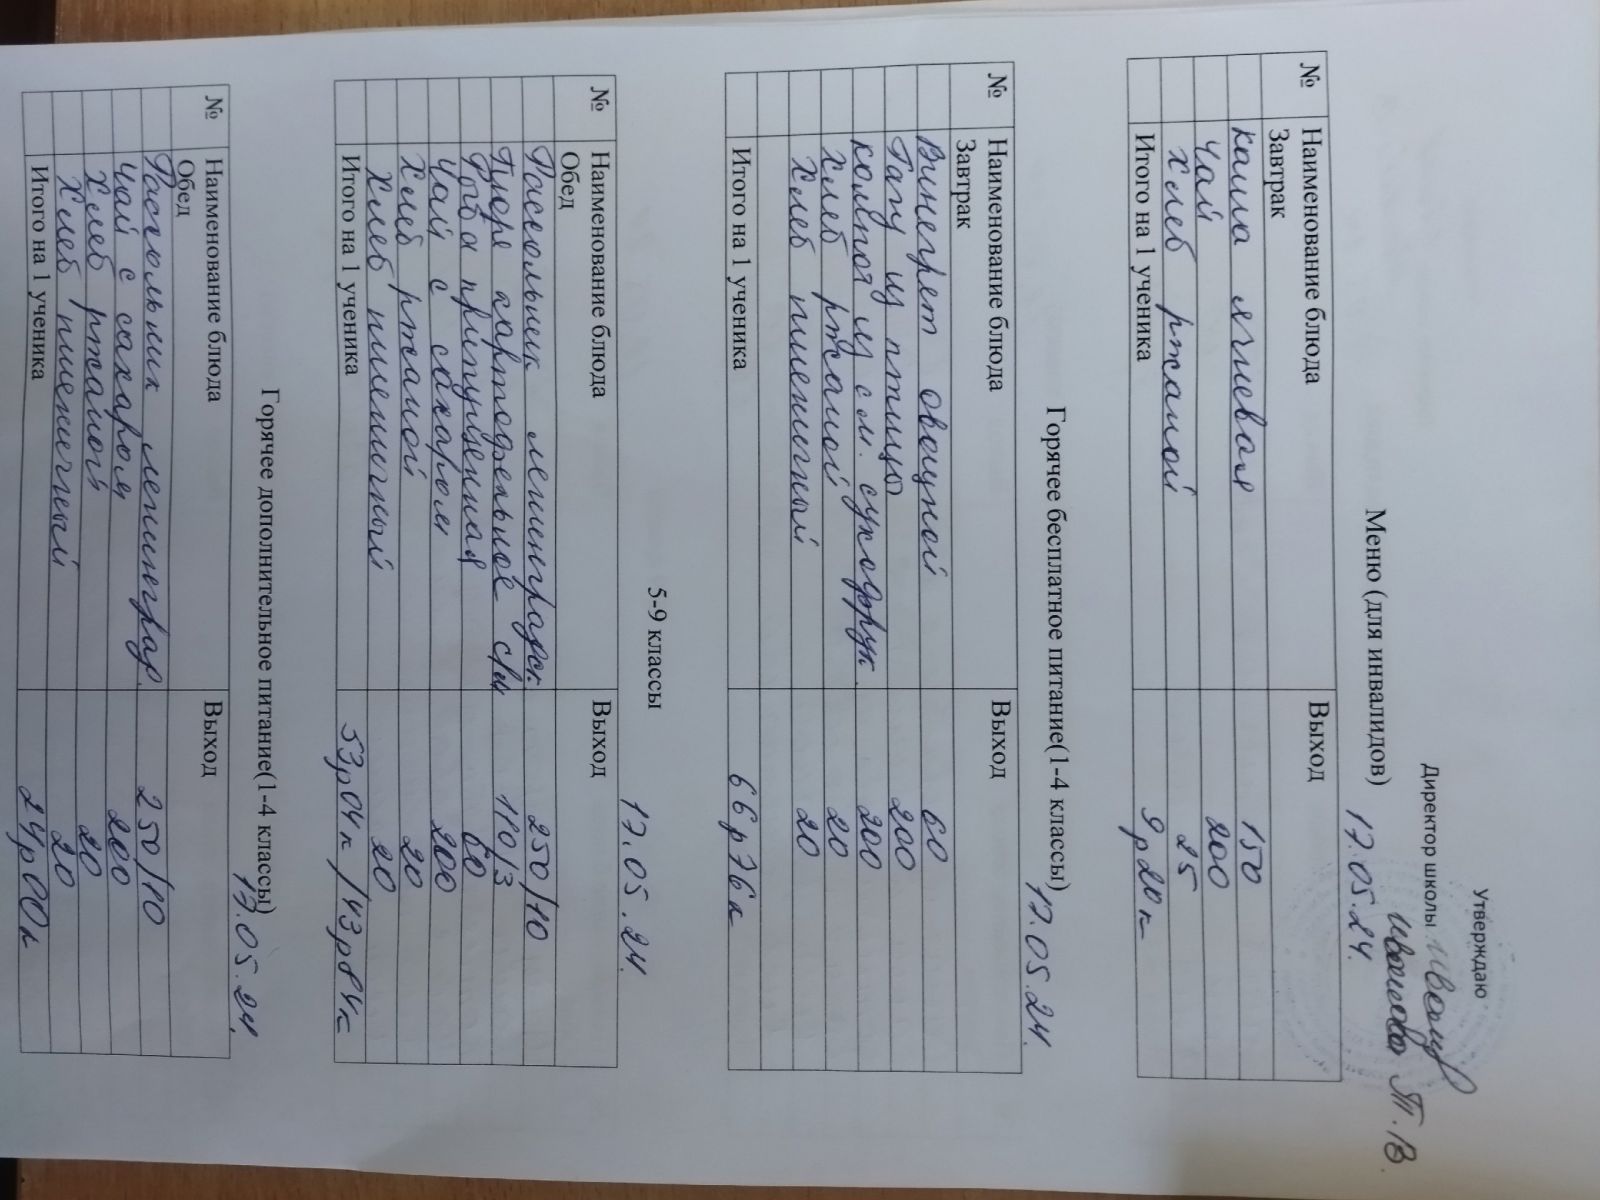 Утверждаю
Директор школы
Т.В.
Меню (для инвалидов) 17.05.24.
№ Наименование блюда Выход
Завтрак
Каша ячневая 150
Чай 200
Хлеб ржаной 25
Итого на 1 ученика 9р20к
Горячее бесплатное питание(1-4 классы) 17.05.24.
№ Наименование блюда Выход
Завтрак
Винегрет овощной 60
Рагу из птицы 200
Компот из см. сухофрук. 200
Хлеб ржаной 20
Хлеб пшеничный 20
Итого на 1 ученика 66р76к
5-9 классы 17.05.24.
№ Наименование блюда Выход
Обед
Рассольник ленинградск 250/10
Пюре картофельное с/м 110/3
Рыба припущенная 60
Чай с сахаром 200
Хлеб ржаной 20
Хлеб пшеничный 20
Итого на 1 ученика 53р04к/43р84к
Горячее дополнительное питание(1-4 классы) 17.05.24.
№ Наименование блюда Выход
Обед
Рассольник ленинград. 250/10
Чай с сахаром 200
Хлеб ржаной 20
Хлеб пшеничный 20
Итого на 1 ученика 24р00к